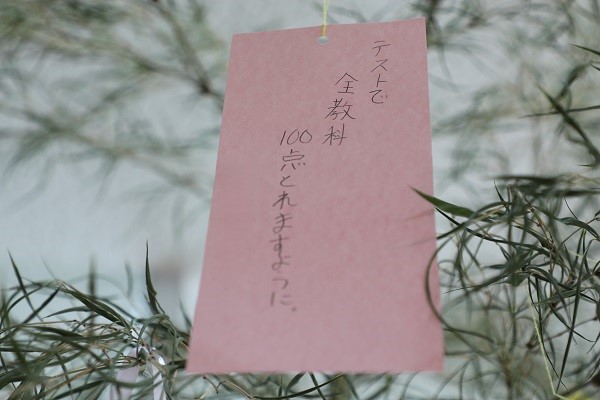 テストで
全教科
100点とれますように。